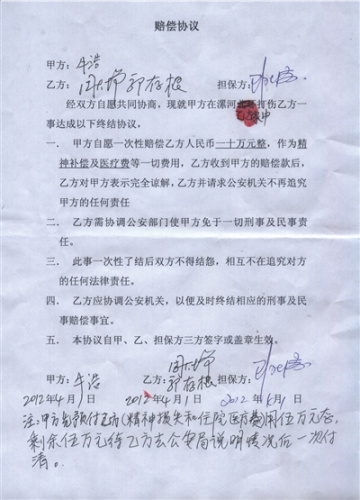 赔偿协议
甲方：牛浩
乙方：郭存根 担保方：
经双方自愿共同协商，现就甲方在漯河 打伤乙方一
事达成以下终结协议，
一． 甲方自愿一次性赔偿乙方人民币一十万元整，作为精
神补偿及医疗费等一切费用，乙方收到甲方的赔偿款后，
乙方对甲方表示完全谅解，乙方并请求公安机关不再追究
甲方的任何责任
二． 乙方需协调公安部门使甲方免于一切刑事及民事责
任。
三． 此事一次性了结后双方不得结怨，相互不在追究对方
的任何法律责任。
四． 乙方应协调公安机关，以便及时终结相应的刑事及民
事赔偿事宜。
五． 本协议自甲、乙、担保方三方签字或盖章生效。
甲方：牛浩 乙方：郭存根 担保方：
2012年4月1日 2012年4月1日 2012年4月1日
注：甲方先预付乙方（精神损失和住院医疗费用伍万元整，
剩余伍万元待乙方去公安局说明情况后一次付
清。